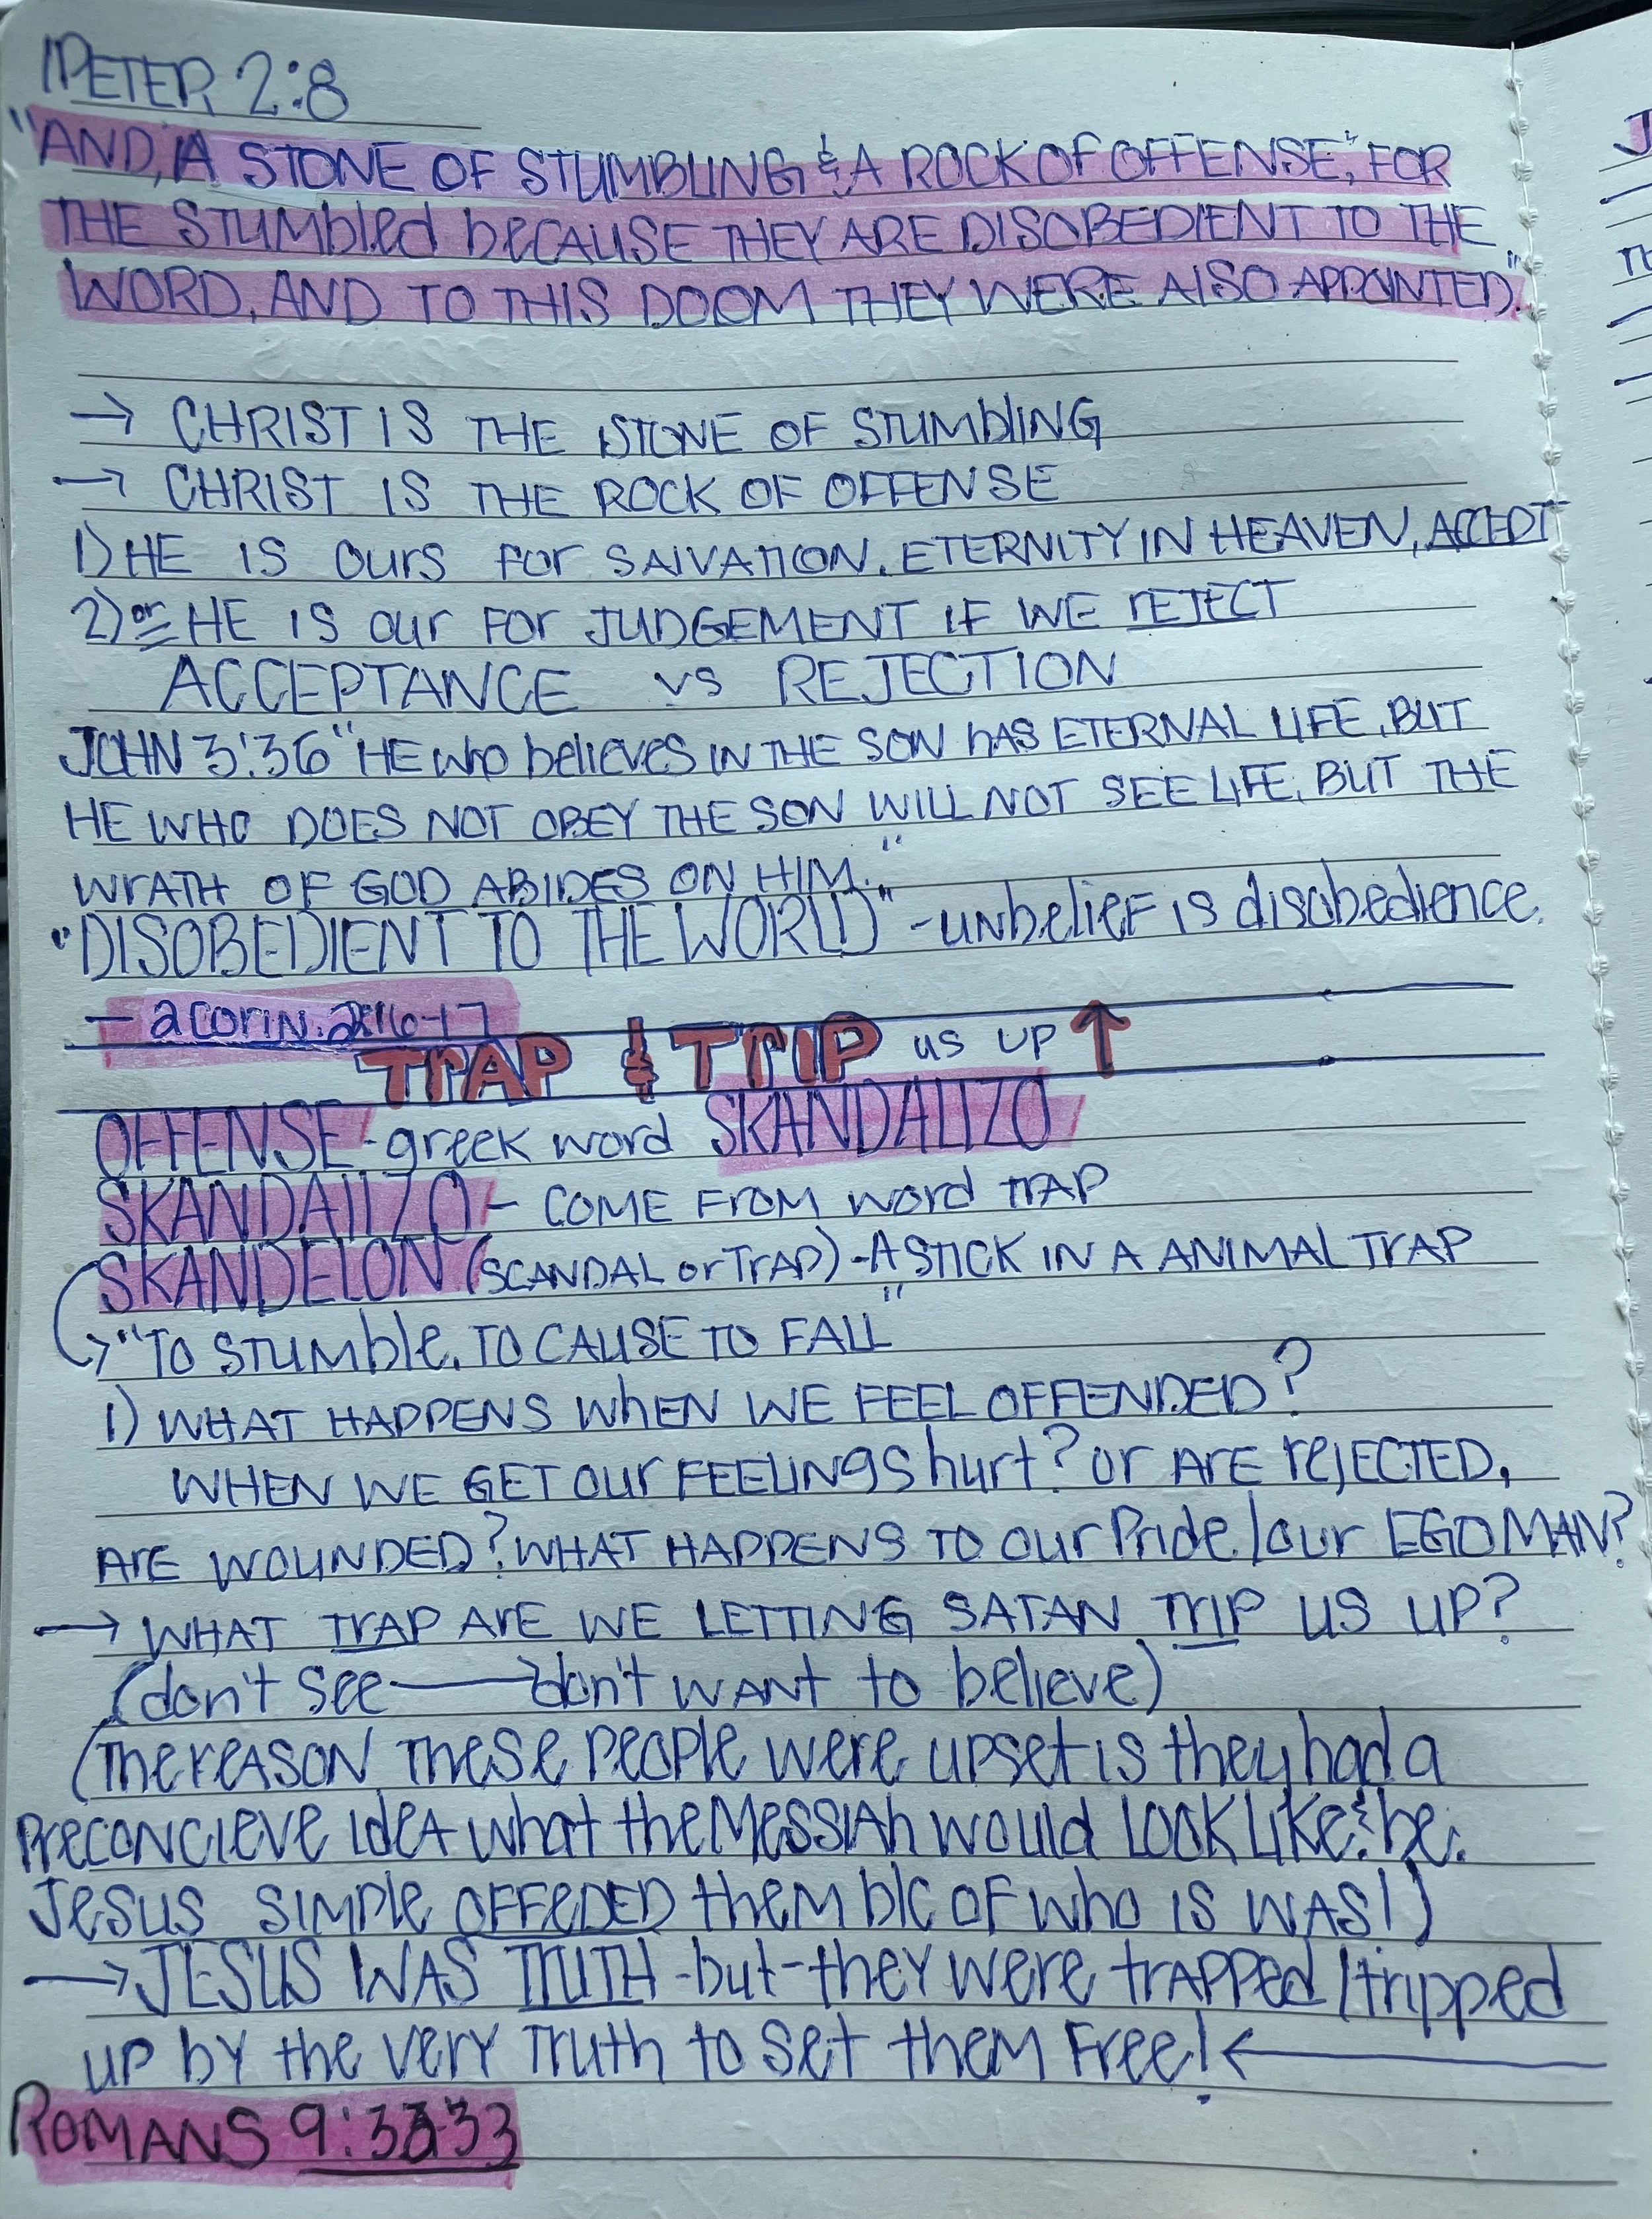 1PETER 2:8
"AND, A STONE OF STUMBLING & A ROCK OF OFFENSE", FOR
THE STUMBLED BECAUSE THEY ARE DISOBEDIENT TO THE
WORD, AND TO THIS DOOM THEY WERE ALSO APPOINTED."
→ CHRIST IS THE STONE OF STUMBLING
→ CHRIST IS THE ROCK OF OFFENSE
1) HE IS OURS FOR SALVATION. ETERNITY IN HEAVEN, ACCEPT
2) or HE IS our FOR JUDGEMENT IF WE REJECT
ACCEPTANCE vs REJECTION
JOHN 3:36 "HE who believes IN THE SON HAS ETERNAL LIFE, BUT
HE WHO DOES NOT OBEY THE SON WILL NOT SEE LIFE, BUT THE
WRATH OF GOD ABIDES ON HIM."
"DISOBEDIENT TO THE WORLD" - unbelief is disobedience.
— 2 CORIN. 2:16-17
TRAP & TRIP us UP ↑
OFFENSE - greek word SKANDALIZO
SKANDALIZO - COME FROM word TRAP
SKANDELON (SCANDAL or TRAP) - A STICK IN A ANIMAL TRAP
→ "TO STUMBLE, TO CAUSE TO FALL"
1) WHAT HAPPENS WHEN WE FEEL OFFENDED?
WHEN WE GET our FEELINGS hurt? or ARE rejECTED,
ARE WOUNDED? WHAT HAPPENS TO our Pride/our EGO MAN?
→ WHAT TRAP ARE WE LETTING SATAN TRIP US UP?
(don't see → don't WANT to believe)
(The reason these people were upset is they had a
Preconcieve idea what the Messiah would Look Like & be.
Jesus simple OFFEDED them b/c of who is was!)
→ JESUS WAS TRUTH - but - they were trapped/tripped
up by the very Truth to set them Free! ←
ROMANS 9:33